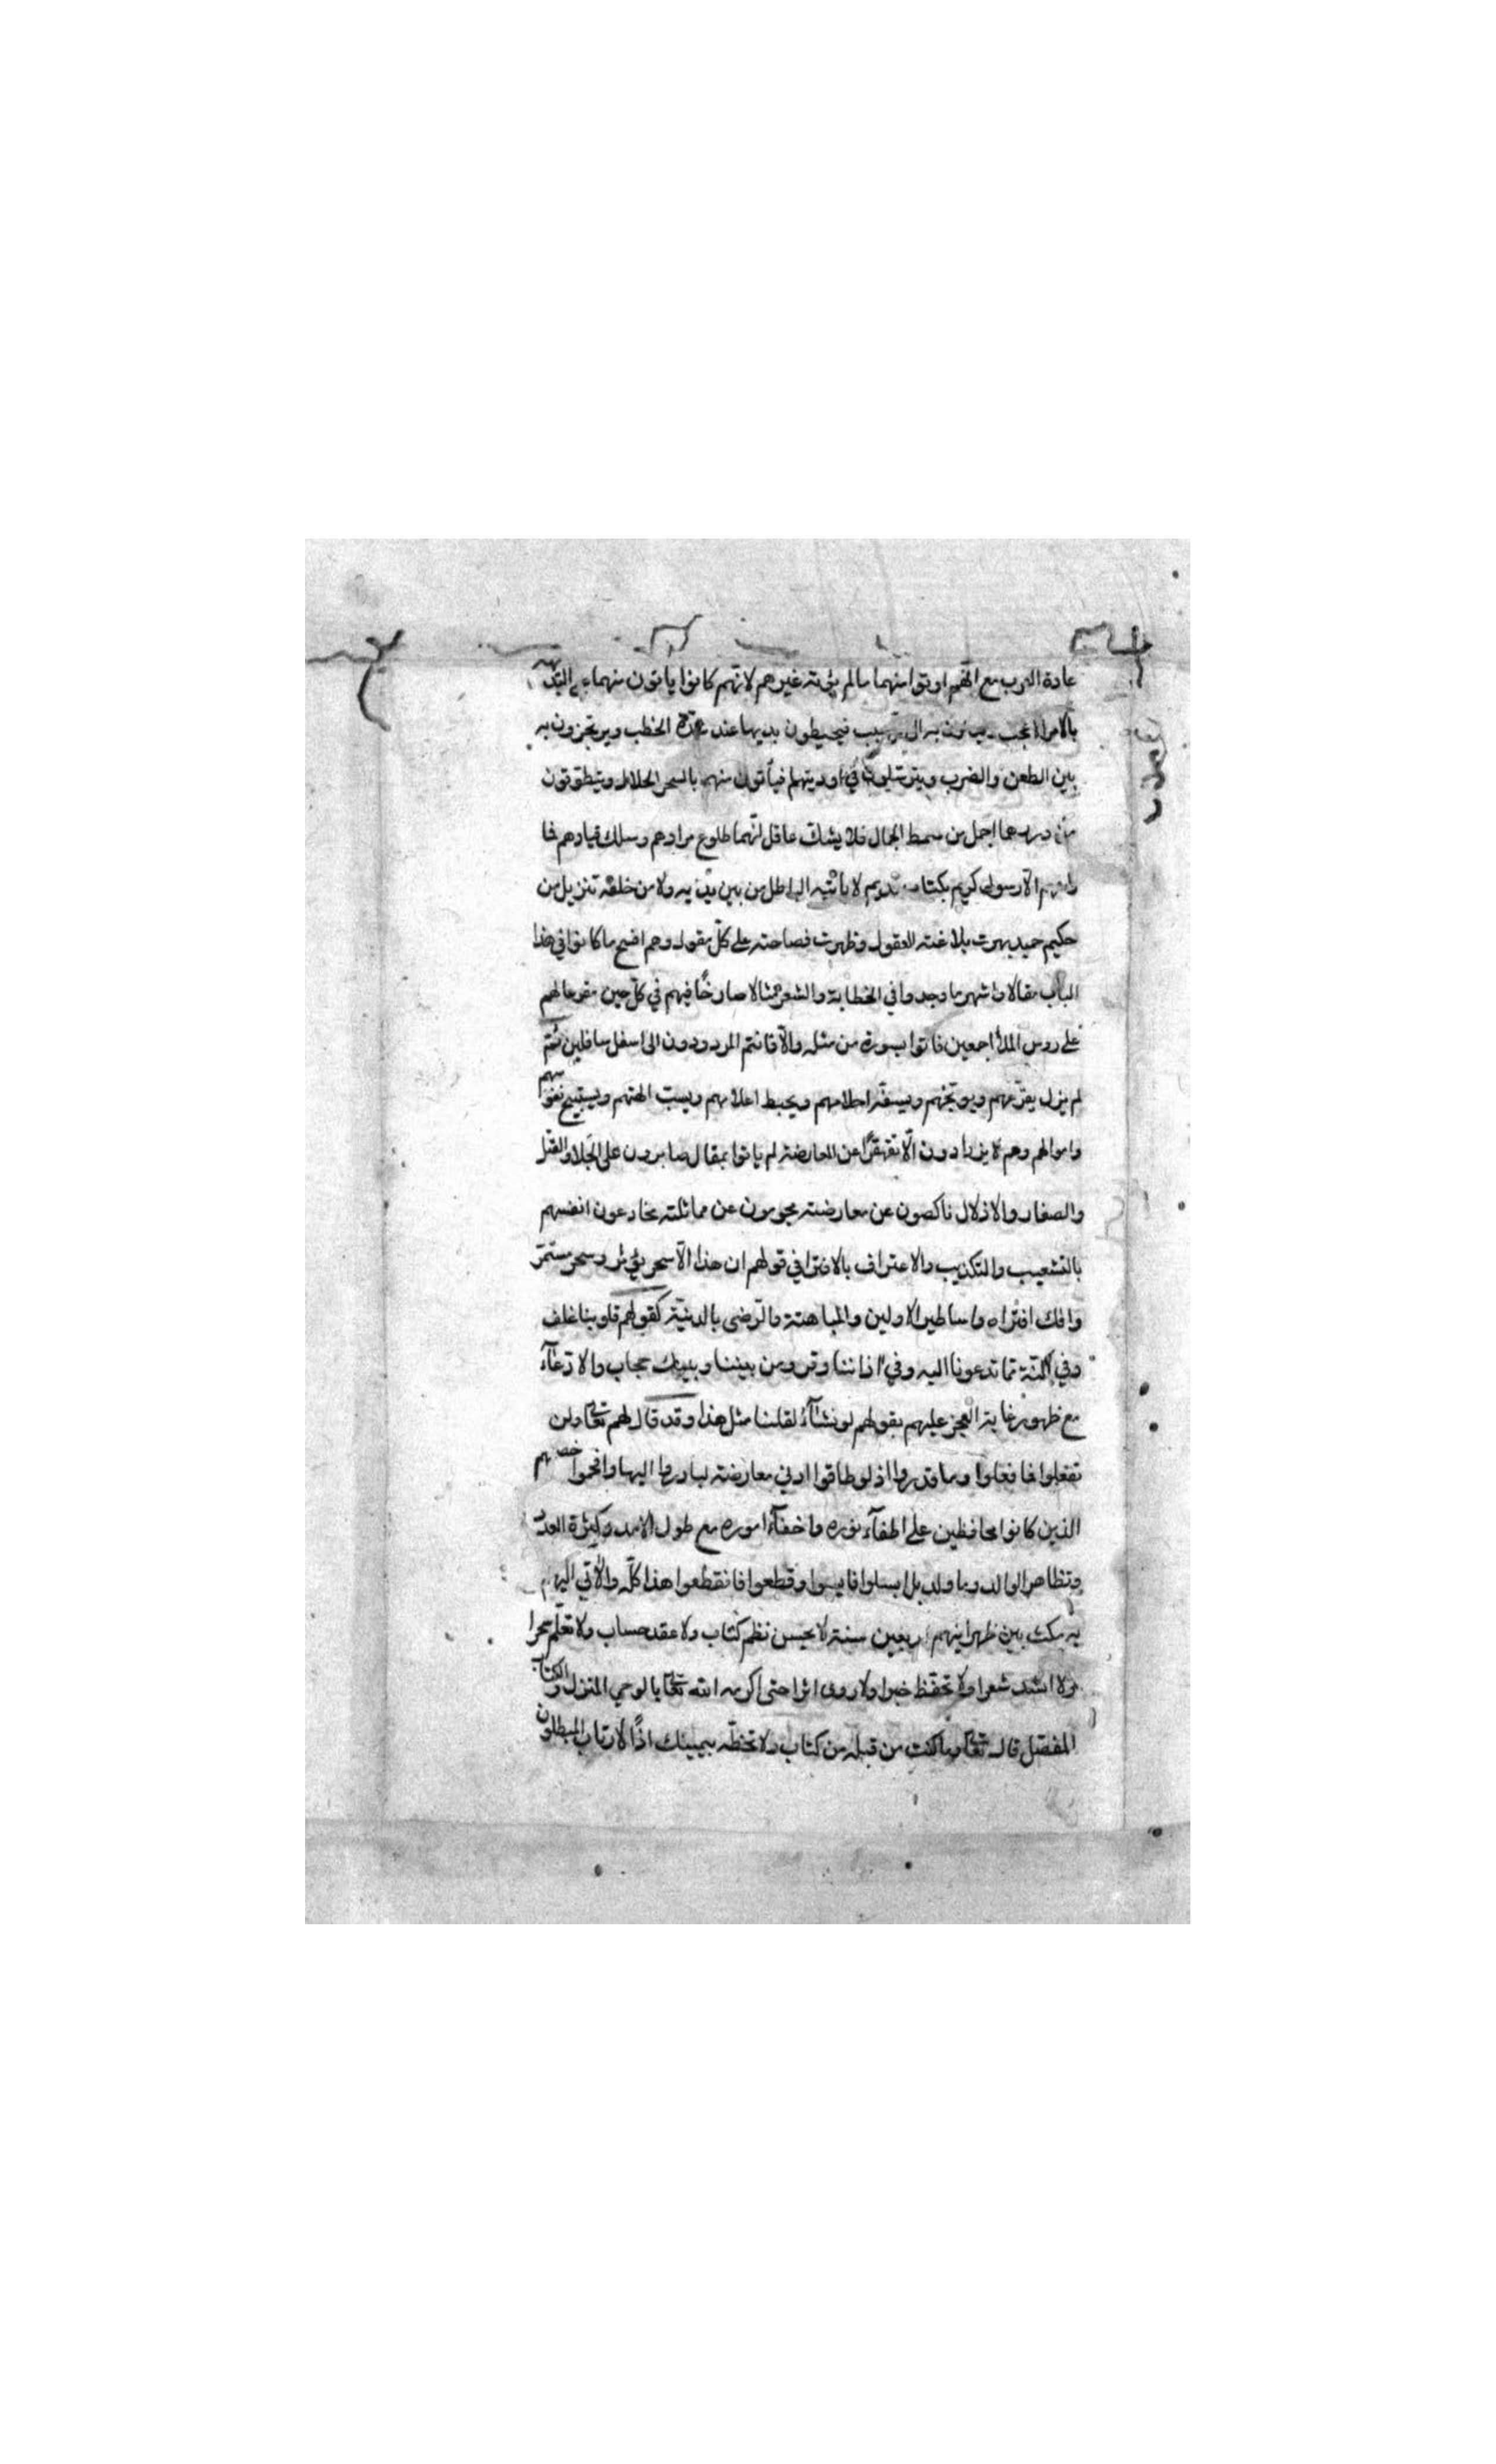 عادة العرب مع انهم اوتوا منهما ما لم يؤته غيرهم لانهم كانوا ياتون منهما على البديهة
بالامر العجب فيخطبون بديها عند عدة الخطب ويرتجزون به
بين الطعن والضرب ويترسلون في اوديتهم فيأتون منهم بالسحر الحلال ويتطوقون
من دررهما اجمل من سمط الجمال فلا يشك عاقل انهما طلوع مرادهم وسلك قيادهم فما
راعهم الا رسول كريم بكتاب قديم لا يأتيه الباطل من بين يديه ولا من خلفه تنزيل من
حكيم حميد بهرت بلاغته العقول وظهرت فصاحته على كل مقول وهم افسح ما كانوا في هذا
الباب مقالا واشهر ما وجدوا في الخطابة والشعر مثالا صارخًا فيهم في كل حين مقرعا لهم
على روس الملأ اجمعين فاتوا بسورة من مثله والا فانتم المردودون الى اسفل سافلين ثم
لم يزل يقرعهم ويوبخهم ويسفه احلامهم ويحبط اعلامهم ويسب الهتهم ويستبيح نفوسهم
واموالهم وهم لا يزدادون الا تقهقرًا عن المعارضة لم ياتوا بمقال صابرون على الجلاء والقتل
والصغار والاذلال ناكصون عن معارضته محجومون عن مماثلته يخادعون انفسهم
بالتشعيب والتكذيب والاعتراف بالافترا في قولهم ان هذا الا سحر يؤثر وسحر مستمر
وافك افتراه واساطير الاولين والمباهتة والرضى بالدنية كقولهم قلوبنا غلف
وفي اكنة مما تدعونا اليه وفي اذاننا وقر ومن بيننا وبينك حجاب والادعآء
مع ظهور غاية العجز عليهم بقولهم لو نشآء لقلنا مثل هذا وقد قال لهم تعالى ولن
تفعلوا فما فعلوا وما قدروا اذ لو طاقوا ادنى معارضة لبادروا اليها وافحموا خصمهم
الذين كانوا محافظين على اطفآء نوره واخفآء اموره مع طول الامد وكثرة العدد
وتظاهر الوالد وما ولد بل ابسلوا فايسوا وقطعوا فانقطعوا هذا كله والآتي اليهم
به مكث بين ظهرانيهم اربعين سنة لا يحسن نظم كتاب ولا عقد حساب ولا تعلم سحرا
ولا انشد شعرا ولا تحفظ خبرا ولا روى اثرا حتى اكرمه الله تعالى بالوحي المنزل والكتاب
المفصل قال تعالى وما كنت من قبله من كتاب ولا تخطه بيمينك اذًا لارتاب المبطلون